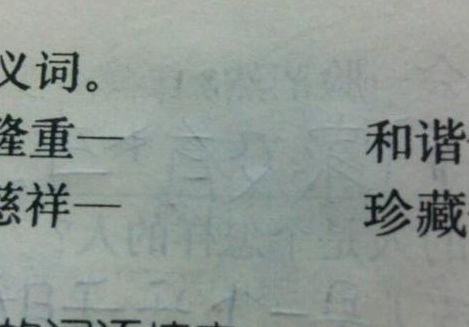 义词。
隆重— 和谐
慈祥— 珍藏